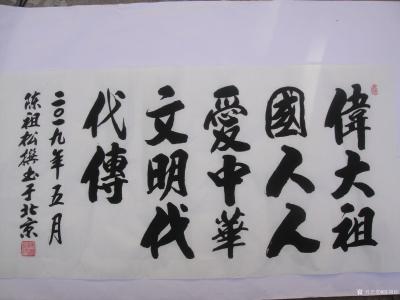 偉大祖
國人人
愛中華
文明代
代傳
二〇一九年五月
陈祖松撰书于北京